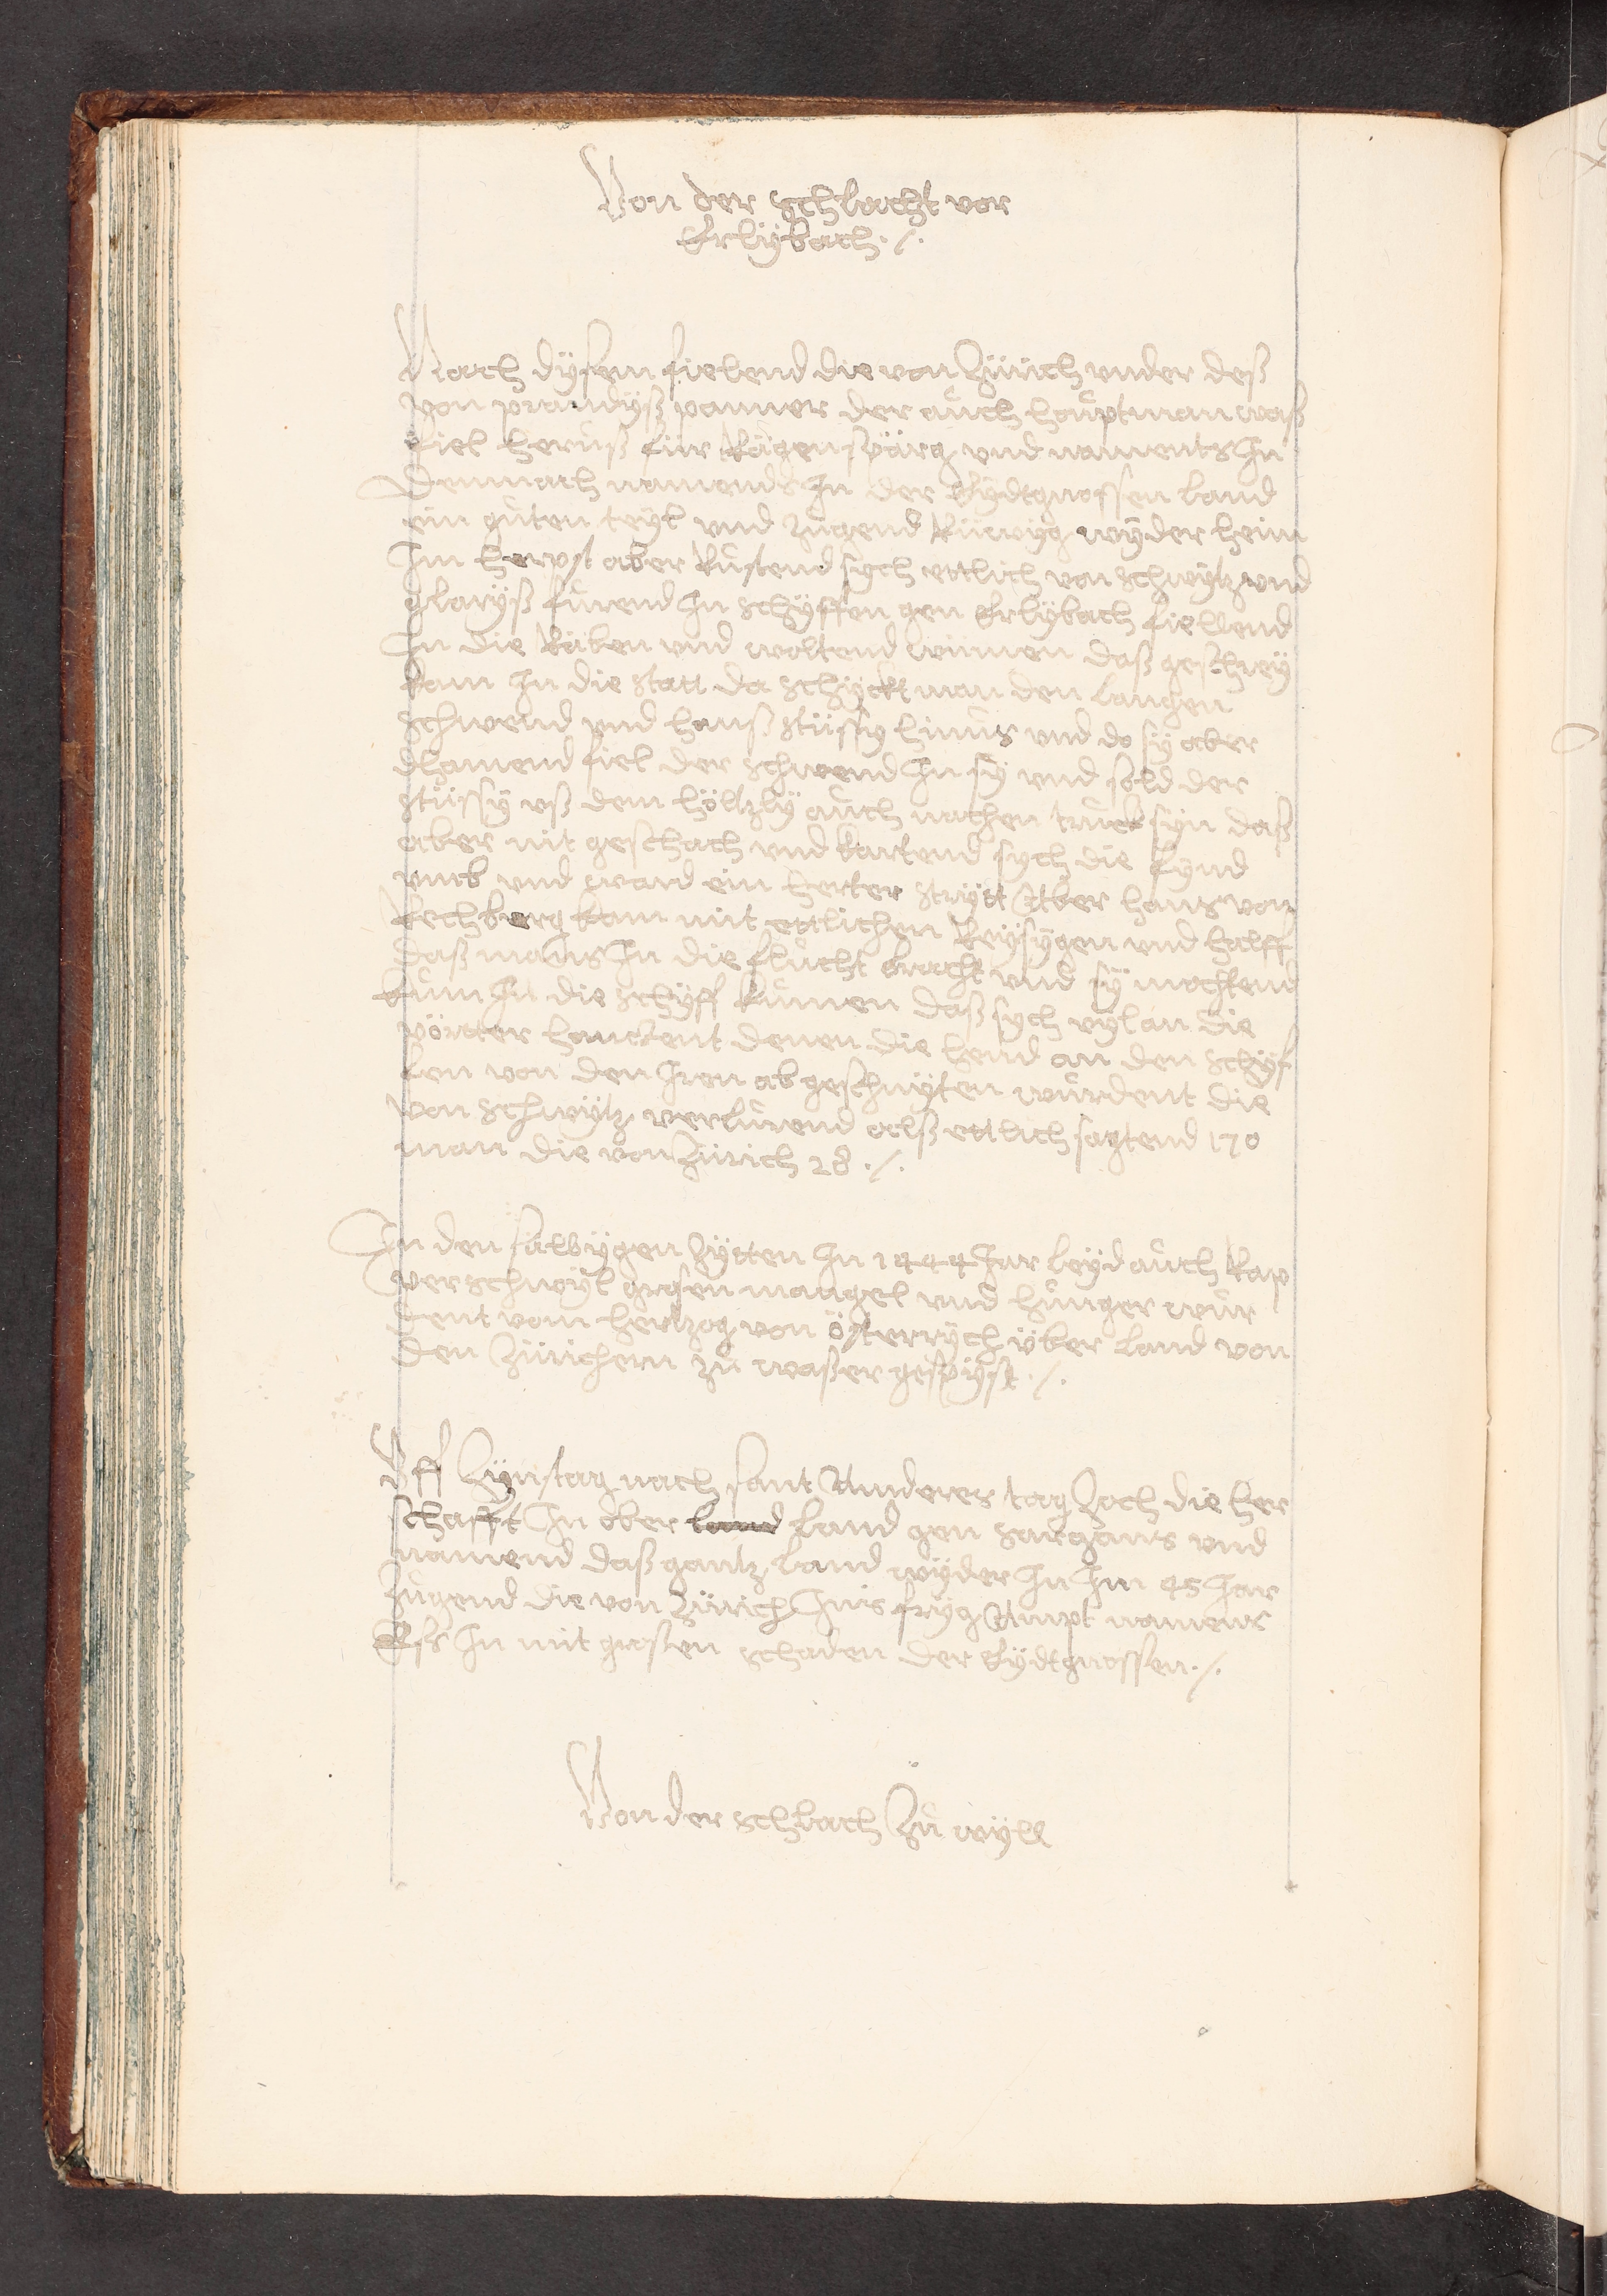 Von der schlacht vor
Erlÿbach ·/·
Nach dÿsem fielend die von Zürich vnder deß
von prandÿß panner der auch houptman waß
fiel heruß für Rägenspärg vnd naments In
Demnach namends In der Eÿdtgnossen land
ein gůten teÿl vnd Zugend Rüewÿg wÿder heim
Im herpst aber Rustend sych ettlich von schwÿtz vnd
glarÿß fůrend In schÿffen gen Erlÿbach fiellend
In die Räben vnd woltend wümen daß geschreÿ
kam In die statt da schÿckt man den langen
schwend vnd hanß stüssy hinus vnd do sÿ aber
dhamend fiel der schwend In sÿ vnd sold der
stüssÿ vß dem höltzlÿ auch nachen truckt sÿn daß
aber nit geschach vnd kartend sych die fÿnd
vmb vnd ward ein herter strÿtt Aber hans von
Rechberg kam mit ettlichen Reÿsÿgen vnd halff
daß mans In die flucht bracht vnd sÿ mochtend
kum In die schÿff kumen daß sych vÿl an die
pörtter hanckent denen die hend an den schÿf
len von den Iren ab geschnÿten wurdent die
von schwÿtz verlurend alß ettlich sagtend 170
man die von Zürich 28 ·/·
In den sälbÿgen Zÿtten In 1444 Jar leÿd auch Rap
perschwÿl grosen mangel vnd hunger wur
dent vom hertzog von österrÿch über land von
den Zürichern zů waßer gespÿst ·/·
Vff Zÿnstag nach sant Anderes tag Zoch die her
schafft In ober land land gen sargans vnd
namend daß gantz land wÿder In Im 45 Jar
Zugend die von Zürich Ins frÿg Ampt namens
Eß In mit grosen schaden der Eÿdtgnossen ·/·
Von der schlach Zů wÿll